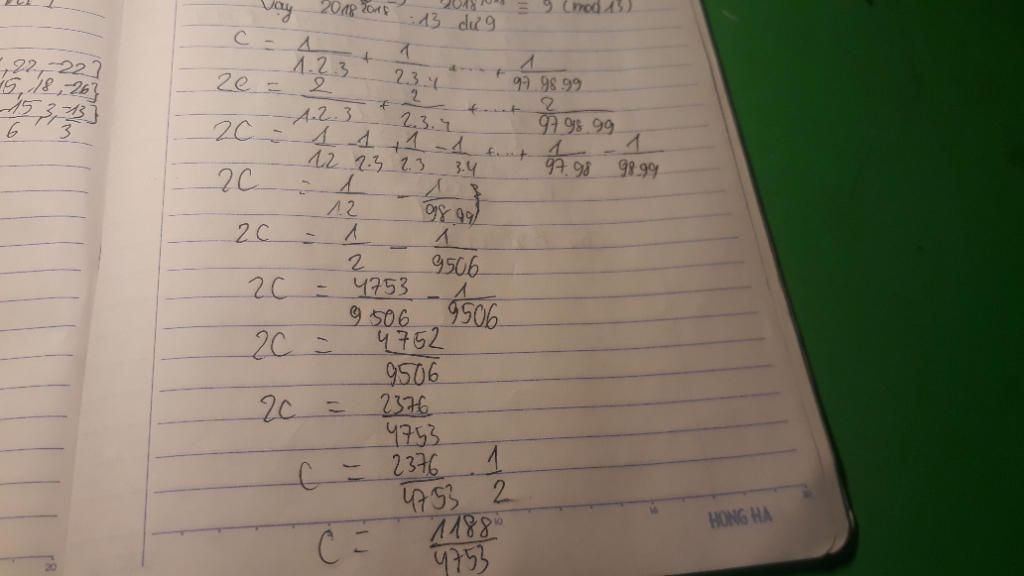 Vậy 2018²⁰¹⁸ : 13 dư 9 ≡ 9 (mod 13)
, 22, -22}
15, 18, -26}
-15, 3, -13/3}
6
C = 1/1.2.3 + 1/2.3.4 + ... + 1/97.98.99
2C = 2/1.2.3 + 2/2.3.4 + ... + 2/97.98.99
2C = 1/1.2 - 1/2.3 + 1/2.3 - 1/3.4 + ... + 1/97.98 - 1/98.99
2C = 1/1.2 - 1/98.99
2C = 1/2 - 1/9506
2C = 4753/9506 - 1/9506
2C = 4752/9506
2C = 2376/4753
C = 2376/4753 . 1/2
C = 1188/4753
HONG HA
20